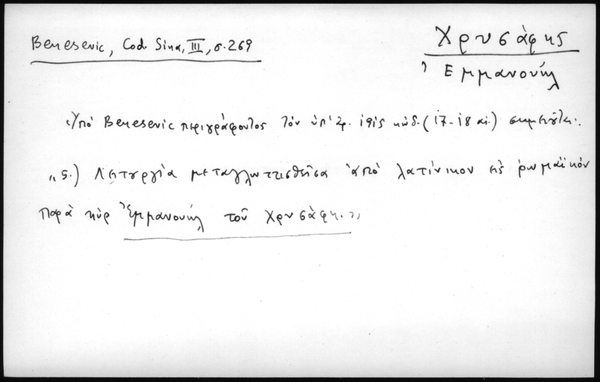 Benesevic, Cod Sina, III, σ. 269
Χρυσάφης
Ἐμμανουήλ
Ὑπό Benesevic περιγράφοντος τόν ὑπ' ἀρ. κώδ. (17-18 αἰ.) σημειοῦται:
"5.) Λειτουργία μεταγλωττισθεῖσα ἀπό λατίνικον εἰς ρωμαϊκόν
παρά κύρ Ἐμμανουήλ τοῦ Χρυσάφη."